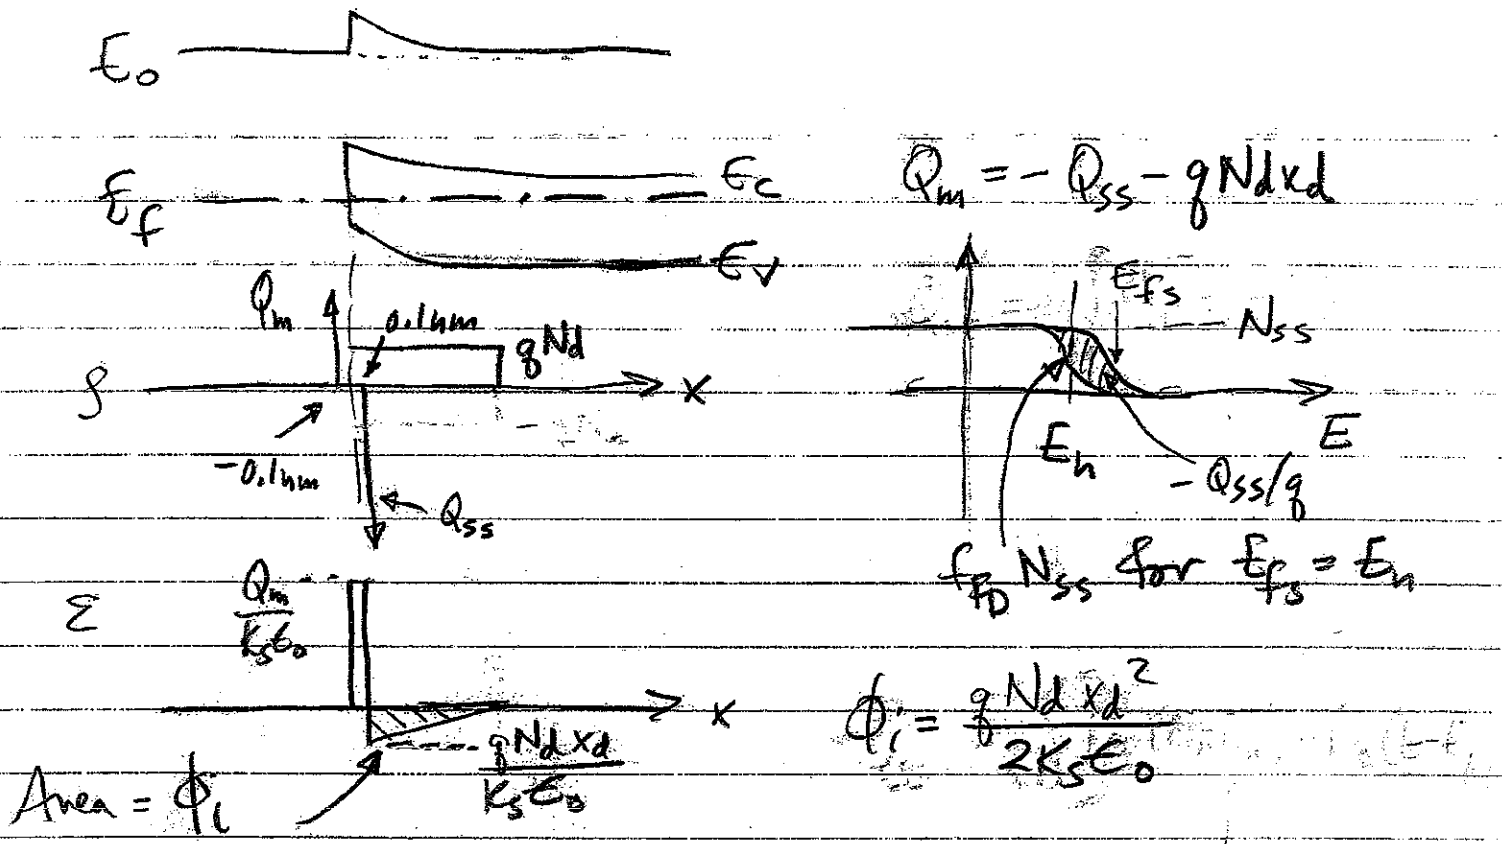 E₀
E_f
E_c
E_v
Q_m = - Q_ss - qN_dx_d
Q_m
0.1nm
qN_d
ρ
x
-0.1nm
Q_ss
E_fs
N_ss
E_n
E
- Q_ss/q
f_FD N_ss for E_fs = E_n
ℰ
Q_m
K_sε₀
x
qN_dx_d
K_sε₀
Area = ϕ_i
ϕ_i = qN_dx_d²
2K_sε₀